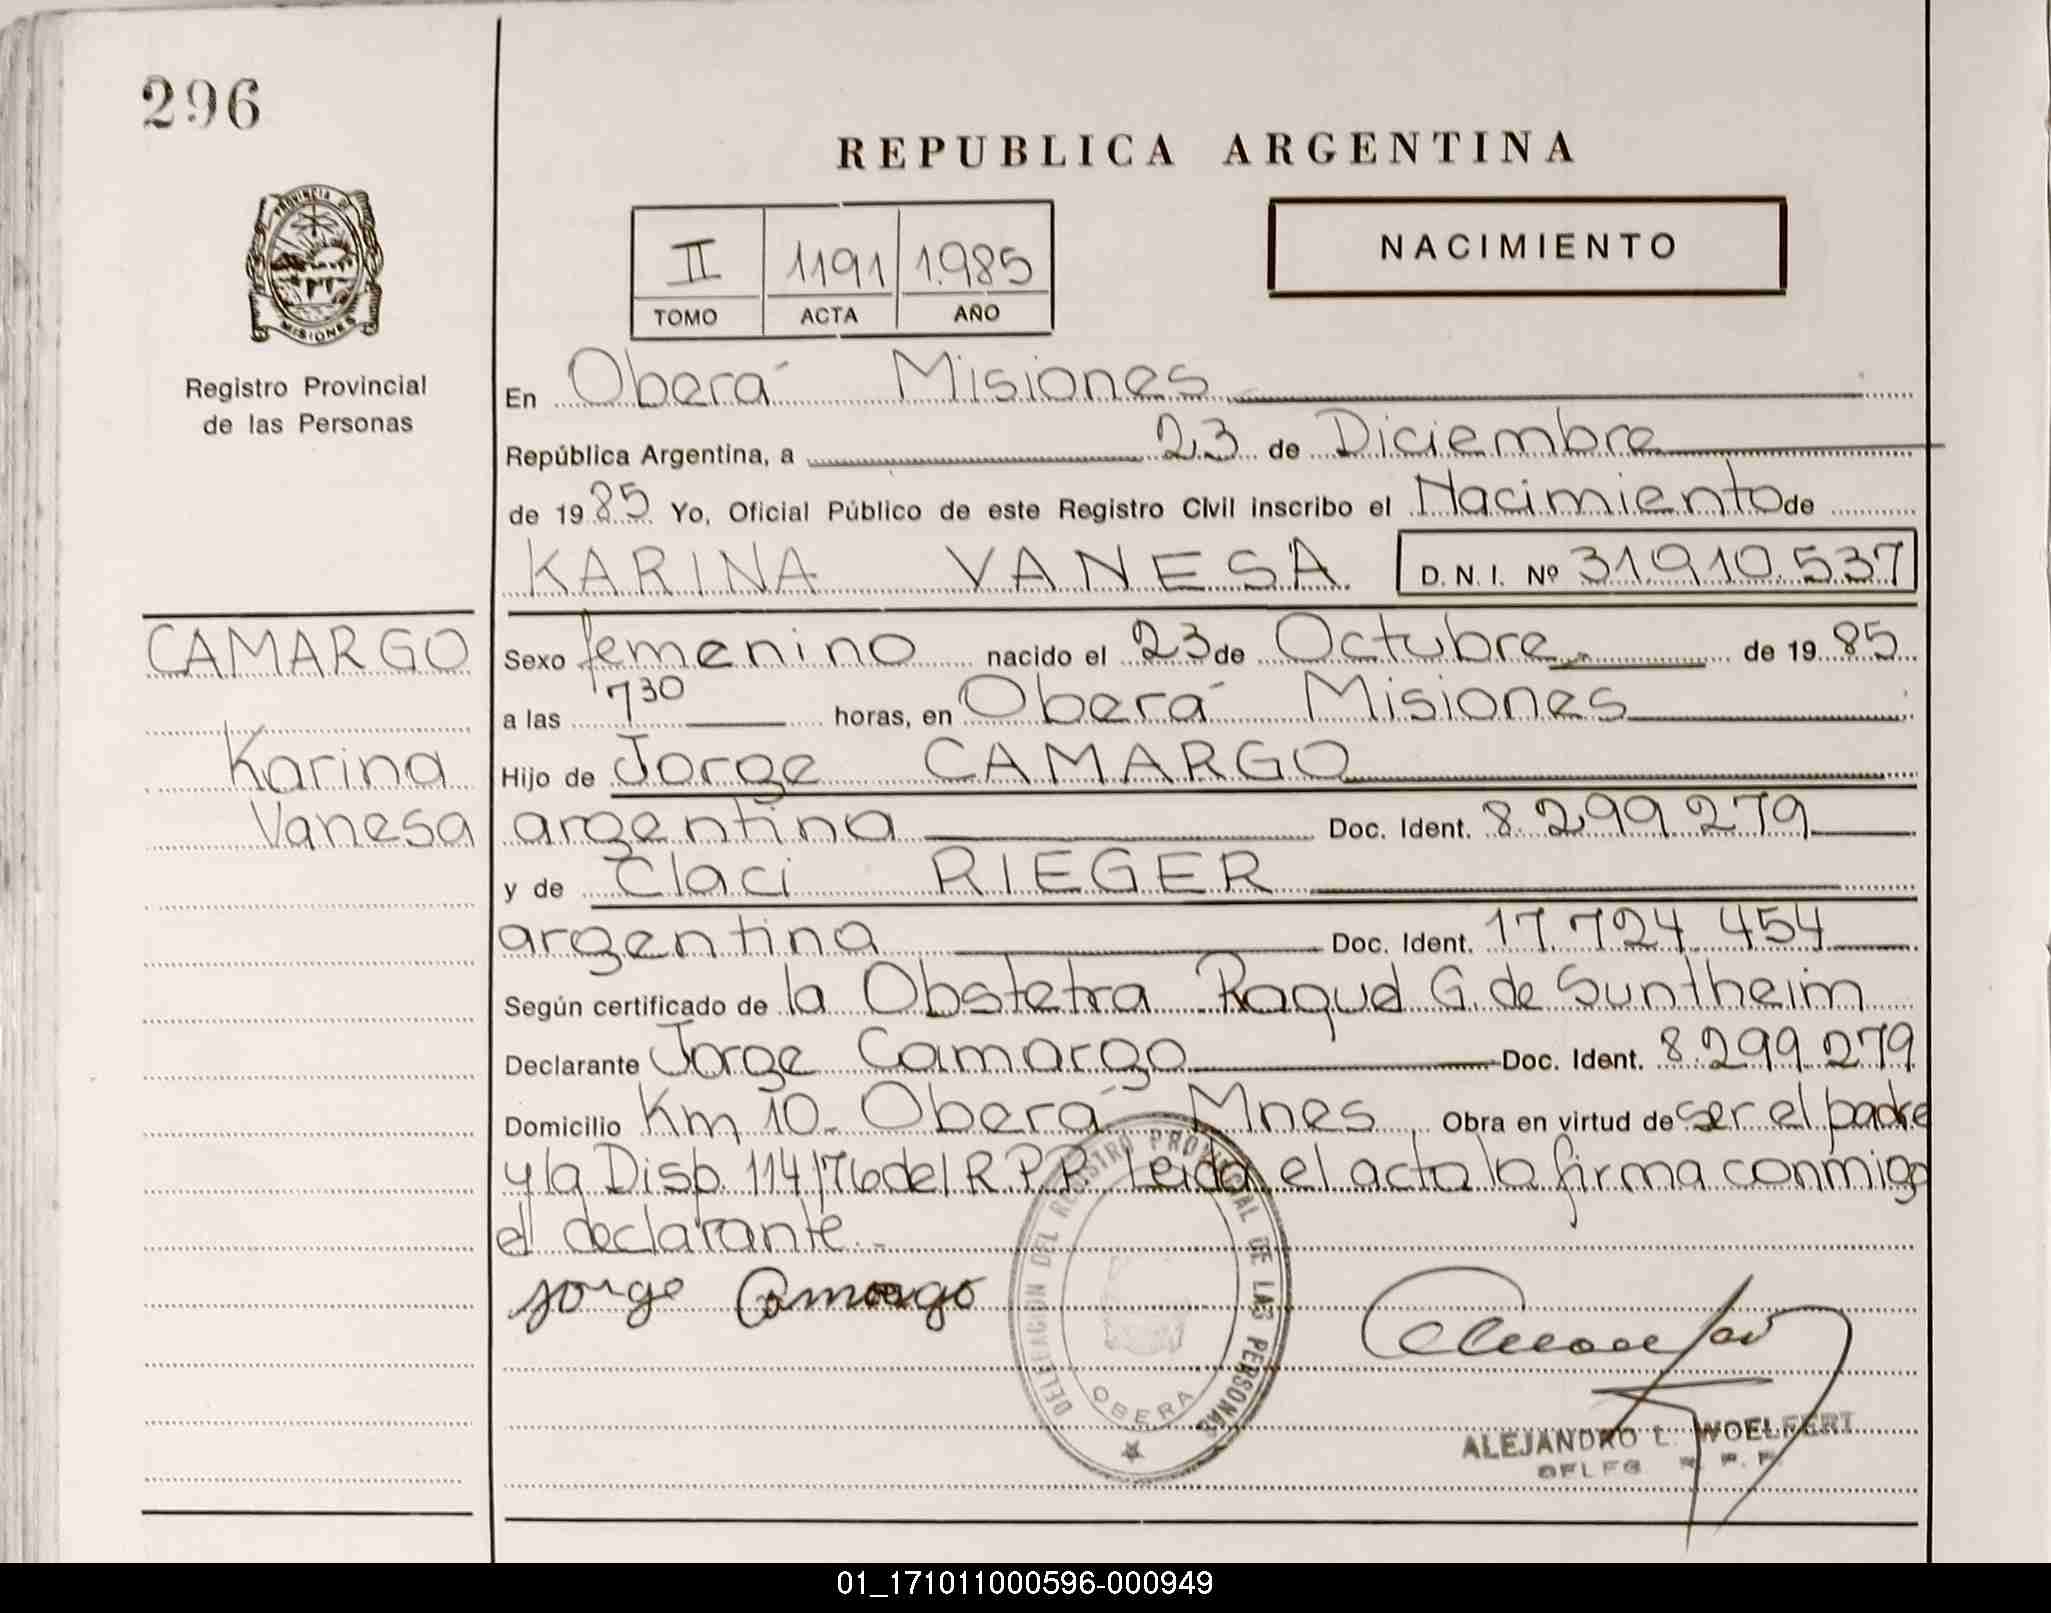 296
REPUBLICA ARGENTINA
PROVINCIA DE
MISIONES
II 1191 1.985
TOMO ACTA AÑO
NACIMIENTO
Registro Provincial
de las Personas
En Oberá Misiones
República Argentina, a 23 de Diciembre
de 1985 Yo, Oficial Público de este Registro Civil inscribo el Nacimiento de
KARINA VANESA D. N. I. Nº 31.910.537
CAMARGO
Karina
Vanesa
Sexo femenino nacido el 23 de Octubre de 1985
a las 7 30 horas, en Oberá Misiones
Hijo de Jorge CAMARGO
argentina Doc. Ident. 8.299.279
y de Claci RIEGER
argentina Doc. Ident. 17.724.454
Según certificado de la Obstetra Raquel G. de Suntheim
Declarante Jorge Camargo Doc. Ident. 8.299.279
Domicilio Km 10 - Oberá Mnes Obra en virtud de ser el padre
y la Disp. 114/76 del R.P.P. Leida el acta la firma conmigo
el declarante.-
Jorge Camargo
DELEGACION DEL REGISTRO PROVINCIAL DE LAS PERSONAS
OBERA
ALEJANDRO L. WOELFERT
01_171011000596-000949